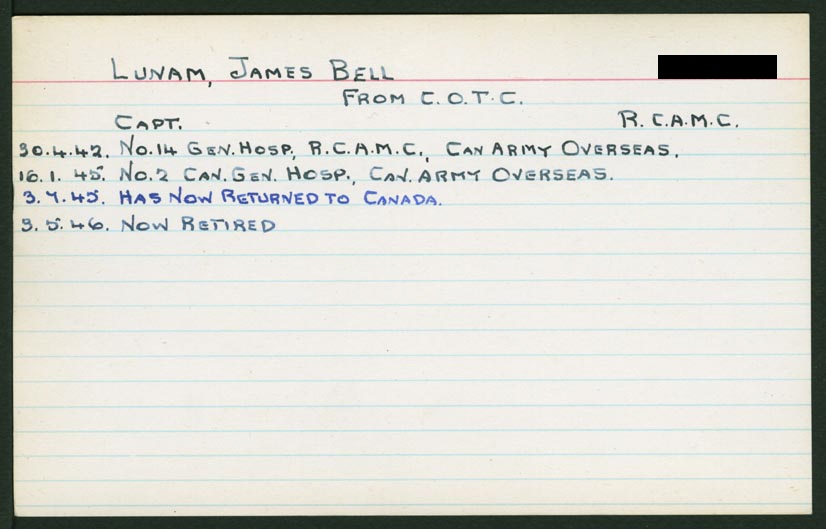 LUNAM, JAMES BELL
FROM C.O.T.C.
CAPT. R.C.A.M.C.
30.4.42. No.14 GEN. HOSP., R.C.A.M.C., CAN ARMY OVERSEAS.
16.1.45. No.2 CAN. GEN. HOSP., CAN. ARMY OVERSEAS.
3.7.45. HAS NOW RETURNED TO CANADA.
3.5.46. NOW RETIRED